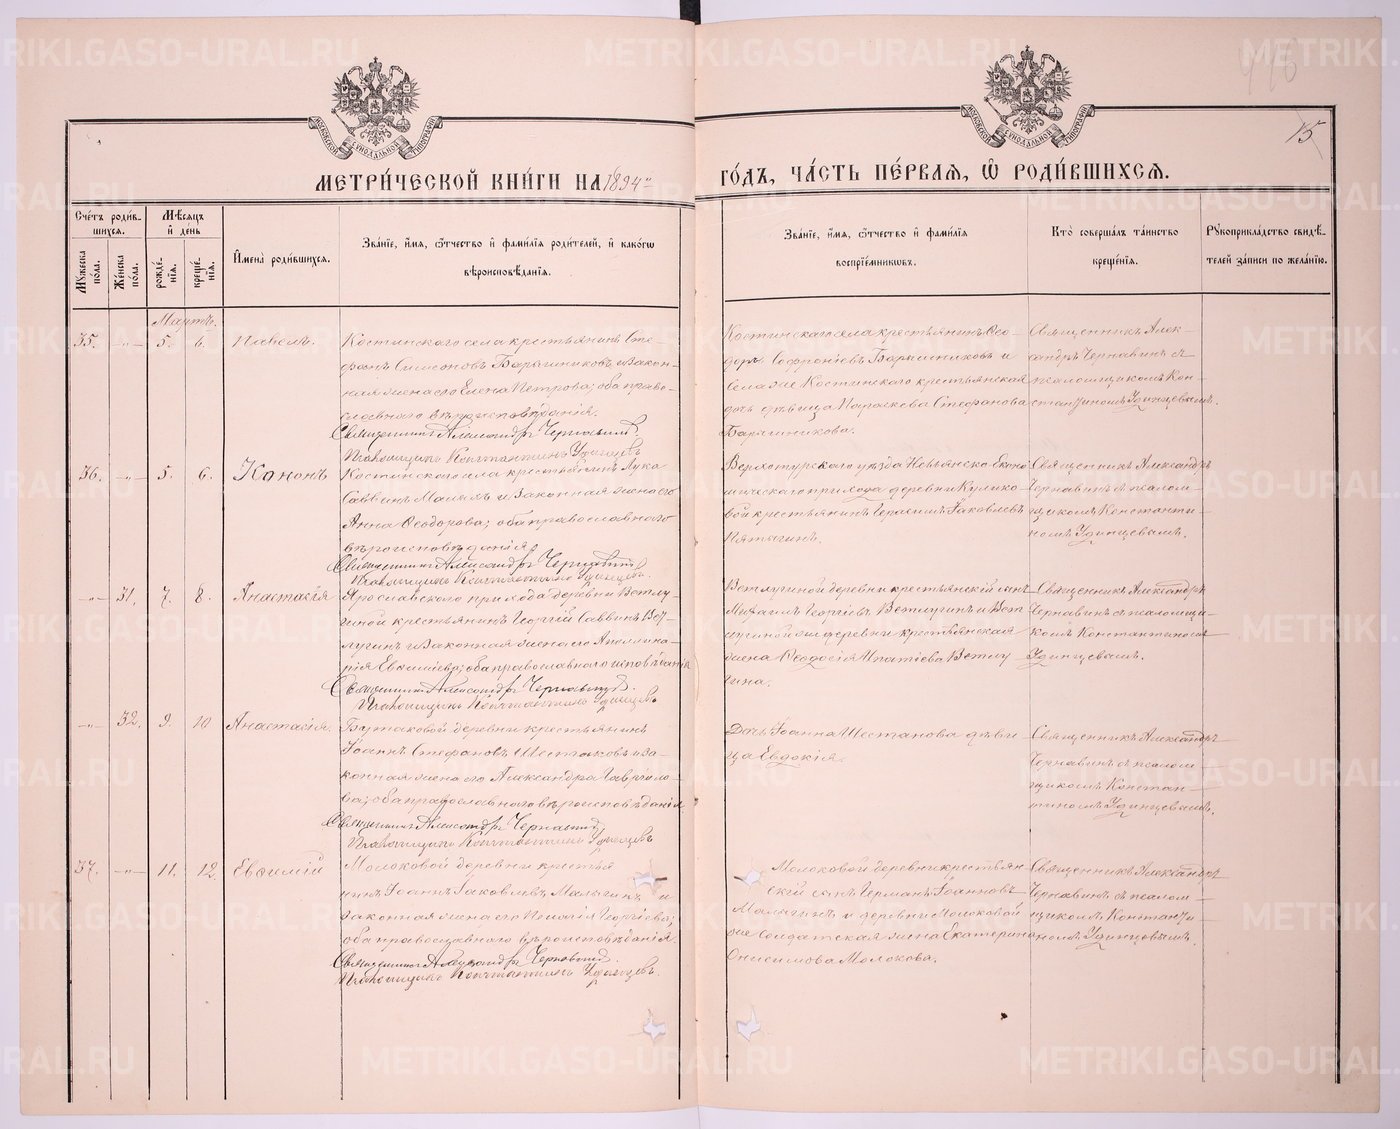 METRIKI.GASO-URAL.RU
МОСКОВСКОЙ СѴНОДАЛЬНОЙ ТИПОГРАФІИ
МОСКОВСКОЙ СѴНОДАЛЬНОЙ ТИПОГРАФІИ
15
МЕТРИ́ЧЕСКОЙ КНИ́ГИ НА 1894 ГО́ДЪ, ЧА́СТЬ ПЕ́РВАѦ, Ѽ РОДИ́ВШИХСѦ.
Сче́тъ роди́в-
шихсѧ.
Мꙋ́жеска по́ла.
Же́нска по́ла.
Мѣ́сѧцъ
и҆ де́нь
рожде́-
нїѧ.
креще́-
нїѧ.
И҆мена̀ роди́вшихсѧ.
Зва́нїе, и҆́мѧ, ѻ҆́тчество и҆ фами́лїѧ роди́телей, и҆ како́гѡ
вѣроисповѣ́данїѧ.
Зва́нїе, и҆́мѧ, ѻ҆́тчество и҆ фами́лїѧ
воспрїе́мникѡвъ.
Кто̀ соверша́лъ та́инство
креще́нїѧ.
Рꙋкоприкла́дство свидѣ́-
телей за́писи по жела́нїю.
Мартъ.
35. -„- 5. 6. Павелъ.
Костинскаго села крестьянинъ Сте-
фанъ Симеоновъ Барышниковъ и закон-
ная жена его Елена Петрова; оба право-
славнаго вѣроисповѣданія.
Священникъ Александръ Чернавинъ
Псаломщикъ Константинъ Удинцевъ
Костинскаго села крестьянинъ Ѳео-
доръ Софроніевъ Барышниковъ и
села же Костинскаго крестьянская
дочь дѣвица Параскева Стефанова
Барышникова.
Священникъ Алек-
сандръ Чернавинъ съ
псаломщикомъ Кон-
стантиномъ Удинцевымъ.
36. -„- 5. 6. Кононъ
Костинскаго села крестьянинъ Лука
Саввинъ Малыхъ и законная жена его
Анна Ѳеодорова; оба православнаго
вѣроисповѣданія.
Священникъ Александръ Чернавинъ
Псаломщикъ Константинъ Удинцевъ.
Верхотурскаго уѣзда Невьянско Эконо
мическаго прихода деревни Кулико-
вой крестьянинъ Герасимъ Іаковлевъ
Пятыгинъ.
Священникъ Александръ
Чернавинъ съ псалом-
щикомъ Константи-
номъ Удинцевымъ.
-„- 31. 7. 8. Анастасія
Ярославскаго прихода деревни Ветлу-
гиной крестьянинъ Георгій Саввинъ Вет-
лугинъ и законная жена его Аполлина-
рія Евѳиміева; оба православнаго исповѣданія
Священникъ Александръ Чернавинъ.
Псаломщикъ Константинъ Удинцевъ
Ветлугиной деревни крестьянскій сынъ
Михаилъ Георгіевъ Ветлугинъ и Вет
лугиной же деревни крестьянская
жена Ѳеодосія Ипатіева Ветлу
гина.
Священникъ Александръ
Чернавинъ съ псаломщи-
комъ Константиномъ
Удинцевымъ.
-„- 32. 9. 10 Анастасія.
Бутаковой деревни крестьянинъ
Іоаннъ Стефановъ Шестаковъ и за-
конная жена его Александра Гаврило-
ва; оба православнаго вѣроисповѣданія
Священникъ Александръ Чернавинъ
Псаломщикъ Константинъ Удинцевъ
Дочь Іоанна Шестакова дѣви
ца Евдокія.
Священникъ Александръ
Чернавинъ съ псалом
щикомъ Констан-
тиномъ Удинцевымъ.
37. -„- 11. 12 Евѳимій
Молоковой деревни крестья
нинъ Іоаннъ Іаковлевъ Малыгинъ и
законная жена его Пелагія Георгіева;
оба православнаго вѣроисповѣданія
Священникъ Александръ Чернавинъ.
Псаломщикъ Константинъ Удинцевъ.
Молоковой деревни крестьян
скій сынъ Германъ Іоанновъ
Малыгинъ и деревни Молоковой
же солдатская жена Екатерина
Онисимова Молокова.
Священникъ Александръ
Чернавинъ съ псалом-
щикомъ Константи
номъ Удинцевымъ.